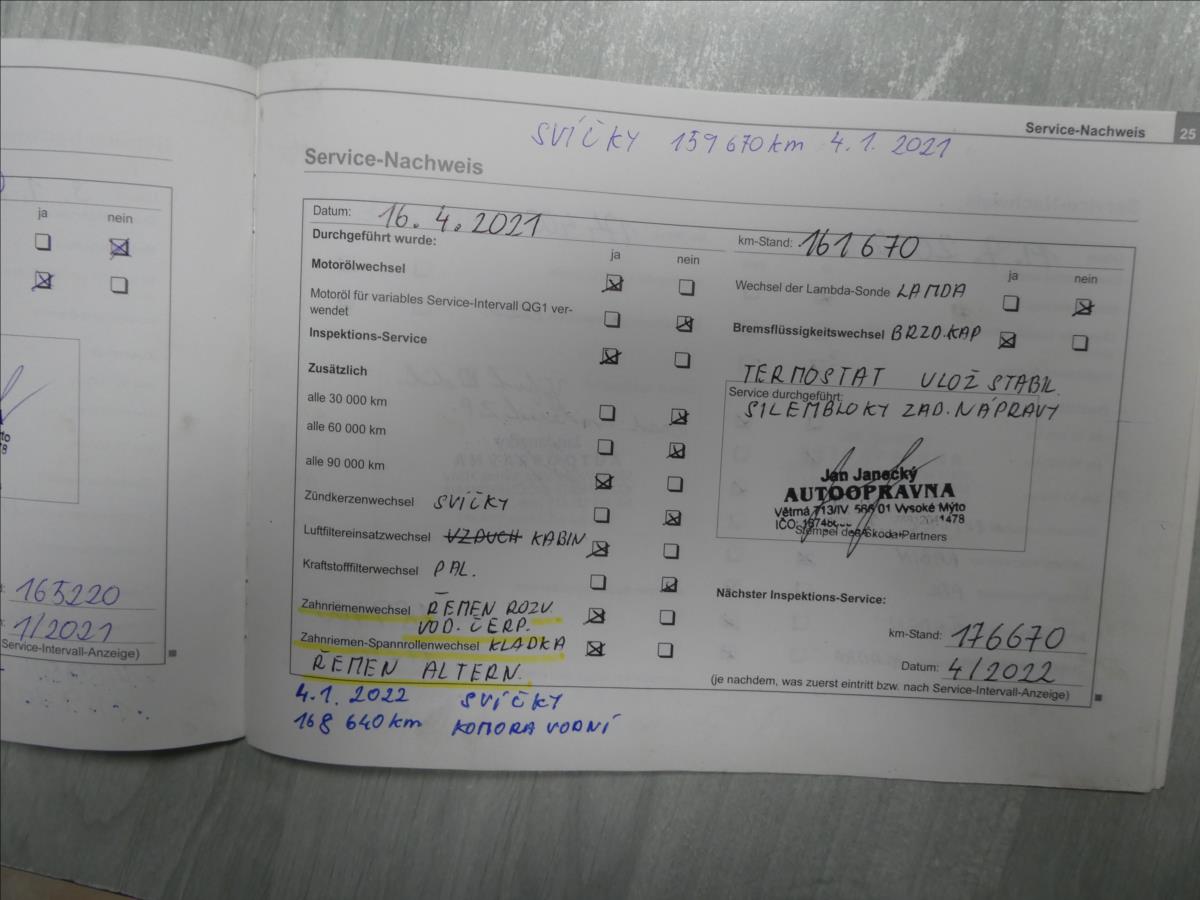 Service-Nachweis 25
SVÍČKY 159670km 4.1.2021
Service-Nachweis
ja nein
165220
1/2021
Service-Intervall-Anzeige)
Datum: 16.4.2021
km-Stand: 161670
Durchgeführt wurde: ja nein
ja nein
Motorölwechsel
Motoröl für variables Service-Intervall QG1 ver-
wendet
Inspektions-Service
Zusätzlich
alle 30 000 km
alle 60 000 km
alle 90 000 km
Zündkerzenwechsel SVÍČKY
Luftfiltereinsatzwechsel VZDUCH KABIN
Kraftstofffilterwechsel PAL.
Zahnriemenwechsel ŘEMEN ROZV.
VOD. ČERP.
Zahnriemen-Spannrollenwechsel KLADKA
ŘEMEN ALTERN.
Wechsel der Lambda-Sonde LAMDA
Bremsflüssigkeitswechsel BRZD.KAP
TERMOSTAT VLOŽ STABIL.
Service durchgeführt:
SILEMBLOKY ZAD.NÁPRAVY
Jan Janecký
AUTOOPRAVNA
Větrná 713/IV 566 01 Vysoké Mýto
IČO: 1478
Stempel des Škoda-Partners
Nächster Inspektions-Service:
km-Stand: 176670
Datum: 4/2022
(je nachdem, was zuerst eintritt bzw. nach Service-Intervall-Anzeige)
4.1.2022 SVÍČKY
168 640km KOMORA VODNÍ